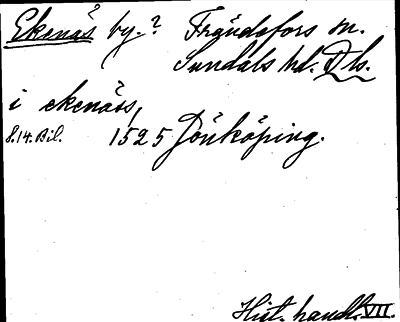 Ekenäs by.? Frändefors sn.
Sundals hd. Dls.
i ekenäs,
s. 14. Bil. 1525 Jönköping.
Hist. handl. VII.